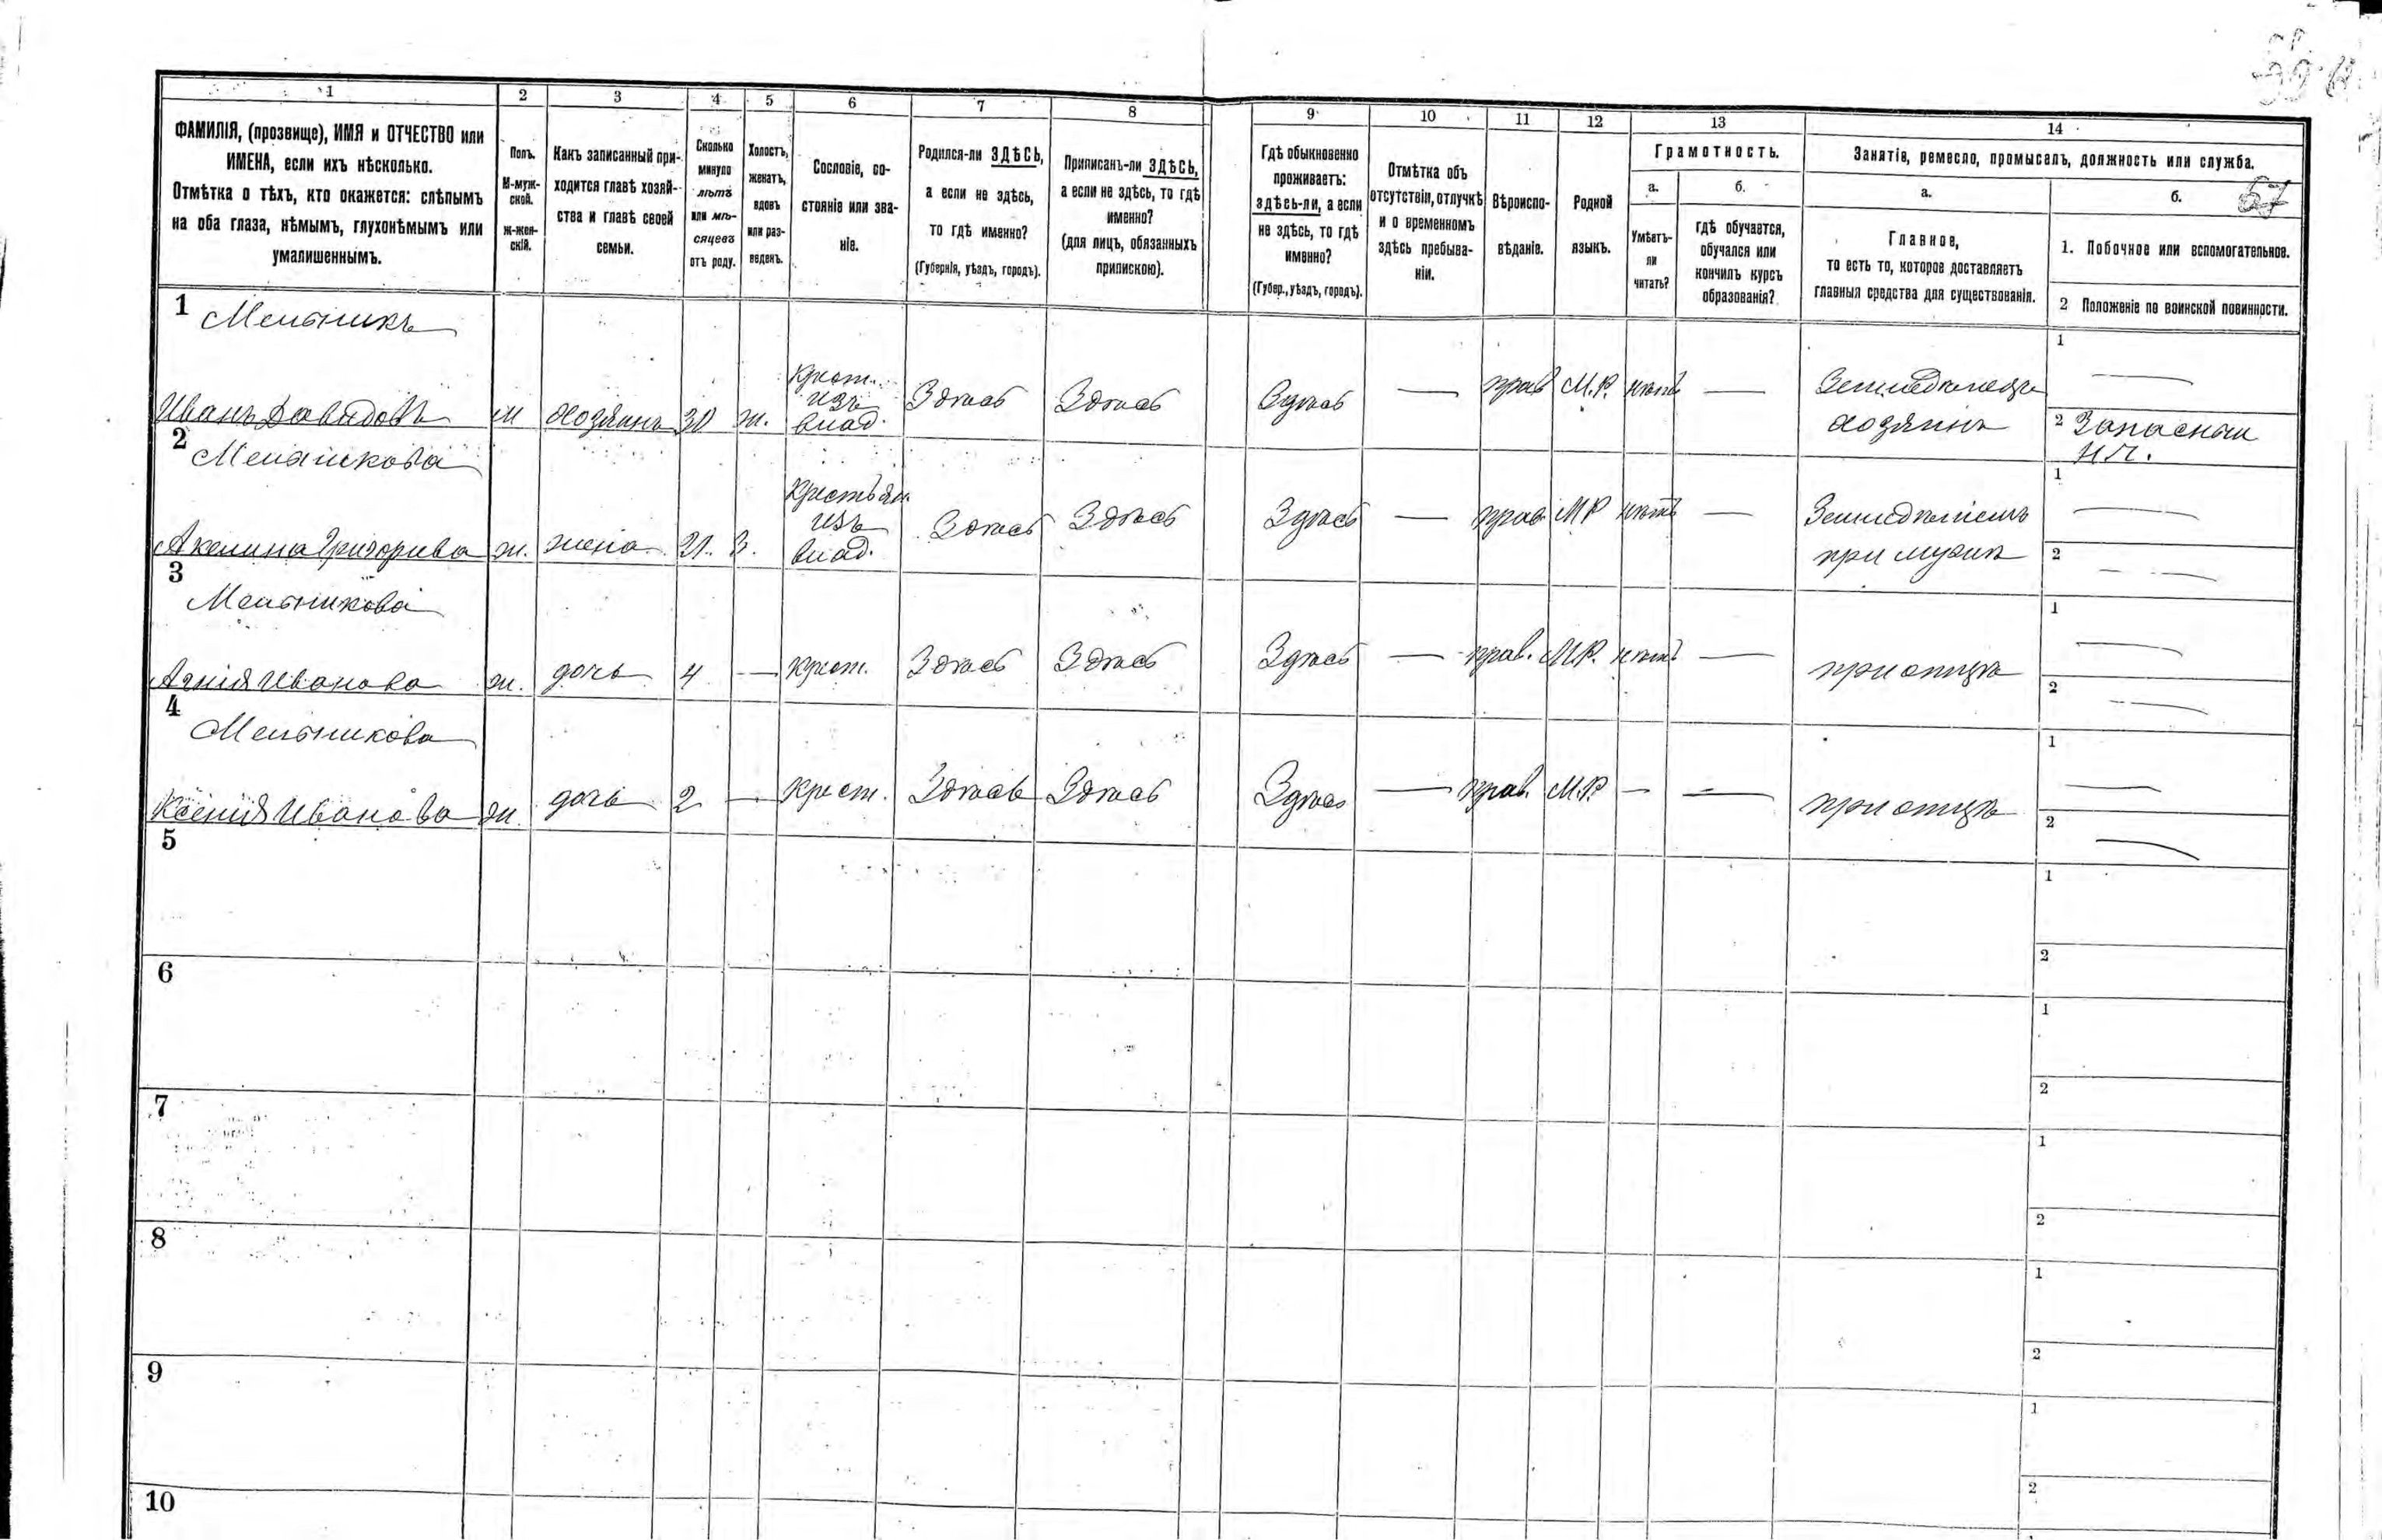 1 2 3 4 5 6 7 8 9 10 11 12 13 14
ФАМИЛІЯ, (прозвище), ИМЯ и ОТЧЕСТВО или
ИМЕНА, если ихъ нѣсколько.
Отмѣтка о тѣхъ, кто окажется: слѣпымъ
на оба глаза, нѣмымъ, глухонѣмымъ или
умалишеннымъ.
Полъ.
М-муж-
ской.
Ж-жен-
скій.
Какъ записанный при-
ходится главѣ хозяй-
ства и главѣ своей
семьи.
Сколько
минуло
лѣтъ
или мѣ-
сяцевъ
отъ роду.
Холостъ,
женатъ,
вдовъ
или раз-
веденъ.
Сословіе, со-
стояніе или зва-
ніе.
Родился-ли ЗДѢСЬ,
а если не здѣсь,
то гдѣ именно?
(Губернія, уѣздъ, городъ).
Приписанъ-ли ЗДѢСЬ,
а если не здѣсь, то гдѣ
именно?
(для лицъ, обязанныхъ
припискою).
Гдѣ обыкновенно
проживаетъ:
здѣсь-ли, а если
не здѣсь, то гдѣ
именно?
(Губер., уѣздъ, городъ).
Отмѣтка объ
отсутствіи, отлучкѣ
и о временномъ
здѣсь пребыва-
ніи.
Вѣроиспо-
вѣданіе.
Родной
языкъ.
Грамотность.
а.
Умѣетъ-
ли
читать?
б.
Гдѣ обучается,
обучался или
кончилъ курсъ
образованія?
Занятіе, ремесло, промыселъ, должность или служба.
а.
Главное,
то есть то, которое доставляетъ
главныя средства для существованія.
б.
57
1. Побочное или вспомогательное.
2 Положеніе по воинской повинности.
1 Мельникъ
Иванъ Давидовъ м хозяинъ 30 ж. крест. изъ влад. Здѣсь Здѣсь Здѣсь — прав М.Р. нѣтъ — Земледѣлецъ хозяинъ
1 —
2 Запасный
Н.Ч.
2 Мельникова
Акелина Григорьева ж. жена 21. З. крестьян изъ влад. Здѣсь Здѣсь Здѣсь — прав. МР нѣтъ — Земледѣліемъ при мужѣ
1 —
2 —
3 Мельникова
Агнія Иванова ж. дочь 4 — крест. Здѣсь Здѣсь Здѣсь — прав. М.Р. нѣтъ — при отцѣ
1 —
2 —
4 Мельникова
Ксенія Иванова ж. дочь 2 — крест. Здѣсь Здѣсь Здѣсь — прав. М.Р. — — при отцѣ
1 —
2 —
5
1
2
6
1
2
7
1
2
8
1
2
9
1
2
10